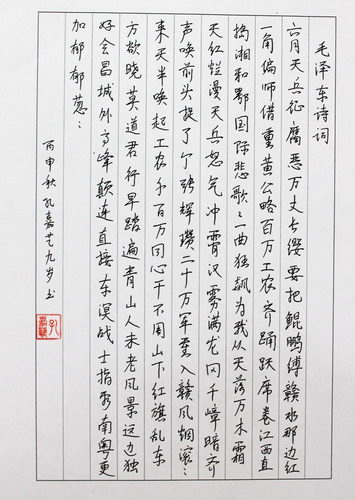 毛泽东诗词
六月天兵征腐恶万丈长缨要把鲲鹏缚赣水那边红
一角偏师借重黄公略百万工农齐踊跃席卷江西直
捣湘和鄂国际悲歌〻一曲狂飙为我从天落万木霜
天红烂漫天兵怒气冲霄汉雾满龙冈千嶂暗齐
声唤前头捉了个张辉瓒二十万军重入赣风烟滚〻
来天半唤起工农千百万同心干不周山下红旗乱东
方欲晓莫道君行早踏遍青山人未老风景这边独
好会昌城外高峰颠连直接东溟战士指看南粤更
加郁郁葱〻
丙申秋孔嘉艺九岁书